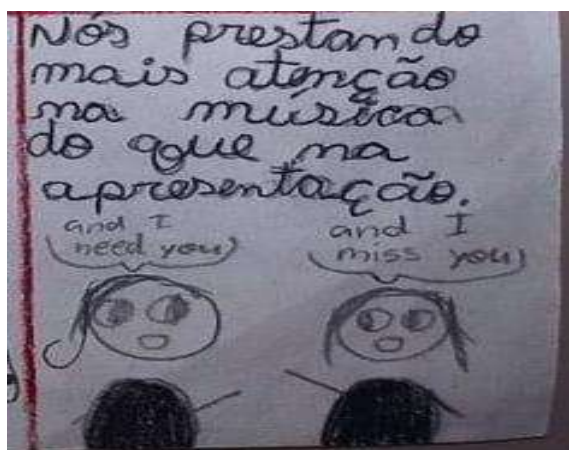 Nós prestando
mais atenção
na música
do que na
apresentação.
and I
need you
and I
miss you